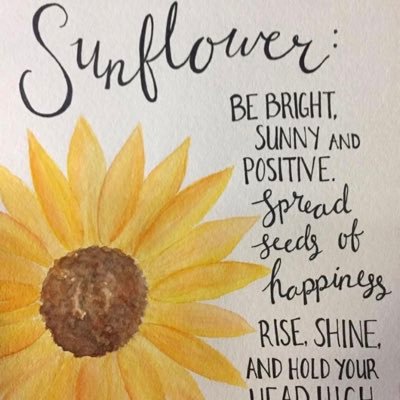 Sunflower:
BE BRIGHT,
SUNNY AND
POSITIVE.
Spread
seeds of
happiness
RISE, SHINE,
AND HOLD YOUR
HEAD HIGH